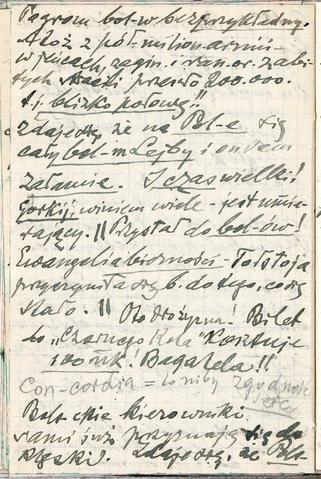 Pogrom bol-w bezprzykładny.
Ałoż z pół-milion. armii-
w jeńcach, zagin. i ran. or. zabi-
tych stracili przeszło 200.000.
t.j. blizko połowę!!
Zdaje się, że na Bol-e się
cały bol-m Lejby i on sam
załamie. I czas wielki!
Gorkij, winien wiele - jest umie-
rający. || Przystał do bol-ów!
Ewangelia biedności - Tołstoja
przyczyniła się b. do tego, co się
stało. || Oto drożyzna! Bilet
do "Czarnego Kota" kosztuje
100 mk! Bagatela!!
Con-cordia = to niby zgodność
serc
Bols-ckie kierowniki.
sami już przyznają się do
klęski. Zdaje się, że Bol-